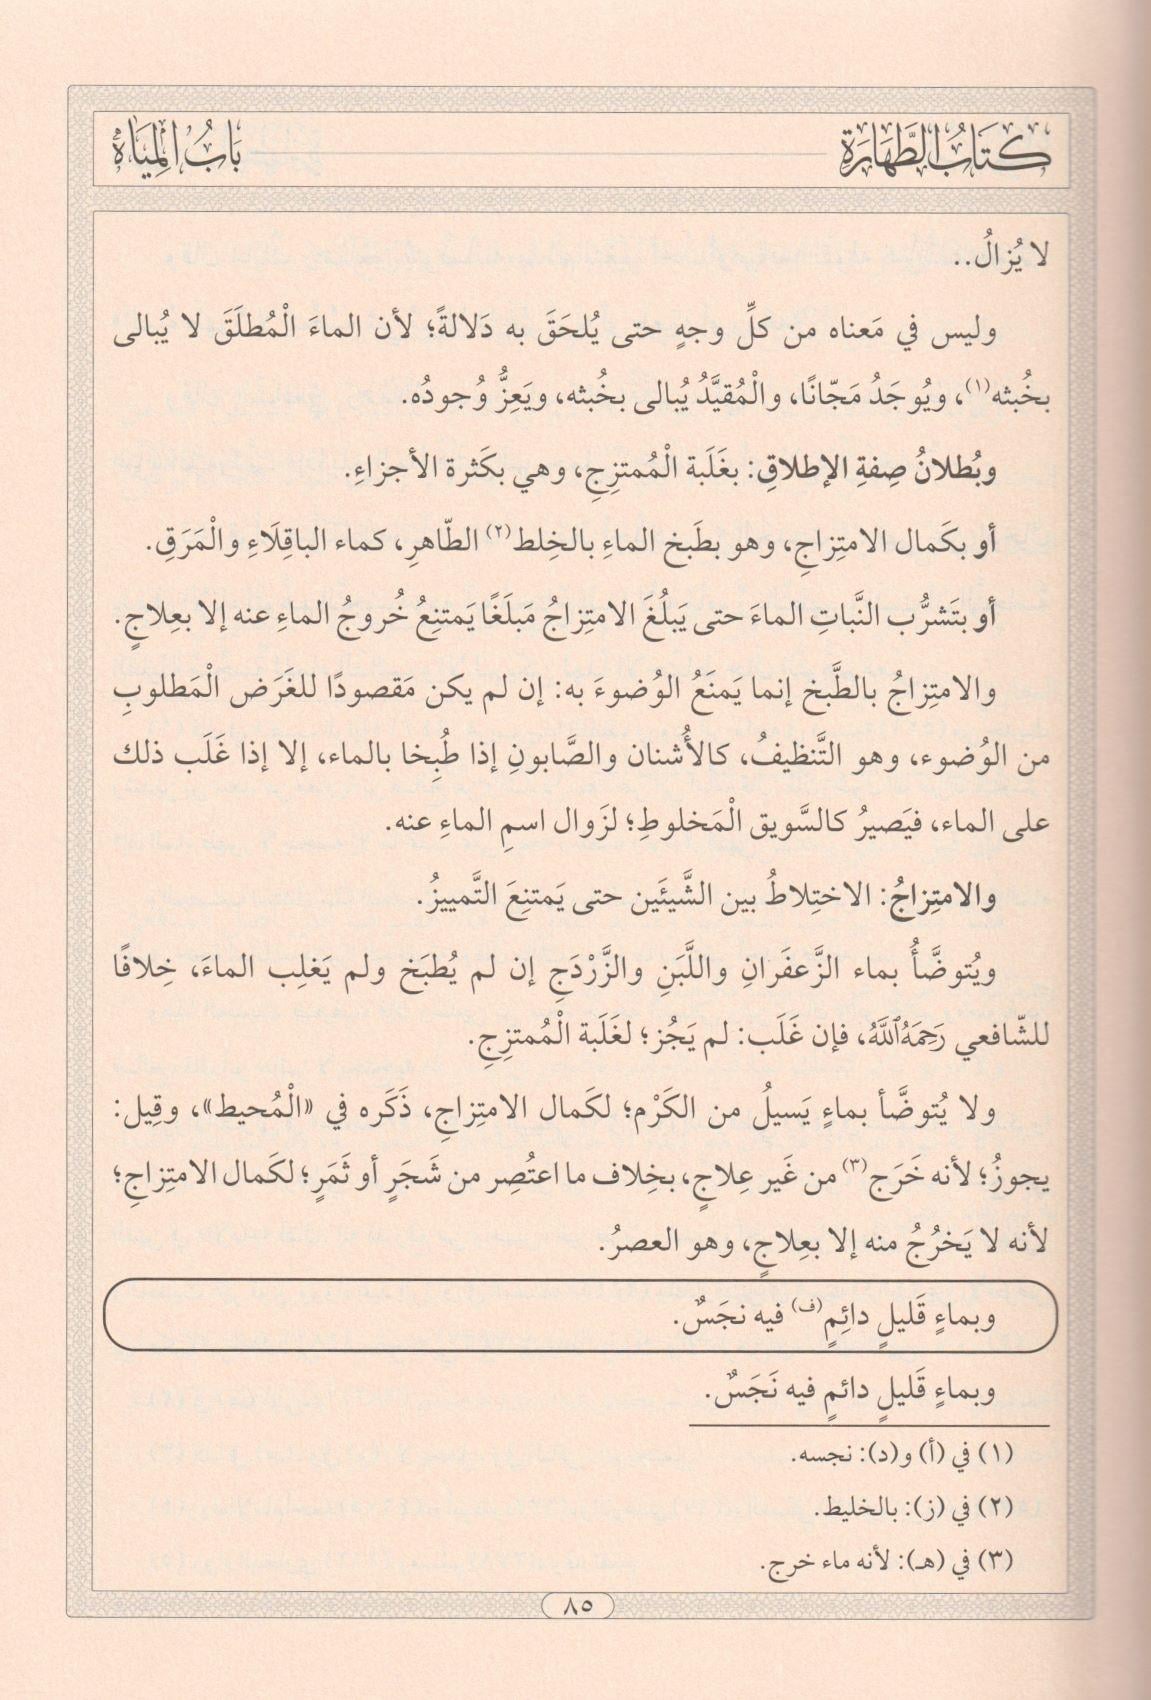 كتاب الطهارة
باب المياه
لا يُزالُ..
وليس في مَعناه من كلِّ وجهٍ حتى يُلحَقَ به دَلالةً؛ لأن الماءَ الْمُطلَقَ لا يُبالى
بخُبثه(١)، ويُوجَدُ مَجّانًا، والْمُقيَّدُ يُبالى بخُبثه، ويَعِزُّ وُجودُه.
وبُطلانُ صِفةِ الإطلاقِ: بغَلَبة الْمُمتزِجِ، وهي بكَثرة الأجزاءِ.
أو بكَمال الامتِزاجِ، وهو بطَبخ الماءِ بالخِلط(٢) الطّاهرِ، كماء الباقِلَاءِ والْمَرَقِ.
أو بتَشرُّب النَّباتِ الماءَ حتى يَبلُغَ الامتِزاجُ مَبلَغًا يَمتنِعُ خُروجُ الماءِ عنه إلا بعِلاجٍ.
والامتِزاجُ بالطَّبخ إنما يَمنَعُ الوُضوءَ به: إن لم يكن مَقصودًا للغَرَض الْمَطلوبِ
من الوُضوء، وهو التَّنظيفُ، كالأُشنان والصَّابونِ إذا طُبِخا بالماء، إلا إذا غَلَب ذلك
على الماء، فيَصيرُ كالسَّويق الْمَخلوطِ؛ لزَوال اسمِ الماءِ عنه.
والامتِزاجُ: الاختِلاطُ بين الشَّيئَين حتى يَمتنِعَ التَّمييزُ.
ويُتوضَّأُ بماء الزَّعفَرانِ واللَّبَنِ والزَّرْدَجِ إن لم يُطبَخ ولم يَغلِب الماءَ، خِلافًا
للشّافعي رَحِمَهُ ٱللَّهُ، فإن غَلَب: لم يَجُز؛ لغَلَبة الْمُمتزِجِ.
ولا يُتوضَّأ بماءٍ يَسيلُ من الكَرْم؛ لكَمال الامتِزاجِ، ذَكَره في «الْمُحيط»، وقِيل:
يجوزُ؛ لأنه خَرَج(٣) من غَير عِلاجٍ، بخِلاف ما اعتُصِر من شَجَرٍ أو ثَمَرٍ؛ لكَمال الامتِزاجِ؛
لأنه لا يَخرُجُ منه إلا بعِلاجٍ، وهو العصرُ.
وبماءٍ قَليلٍ دائِمٍ(ف) فيه نجَسٌ.
وبماءٍ قَليلٍ دائمٍ فيه نَجَسٌ.
(١) في (أ) و(د): نجسه.
(٢) في (ز): بالخليط.
(٣) في (هـ): لأنه ماء خرج.
٨٥